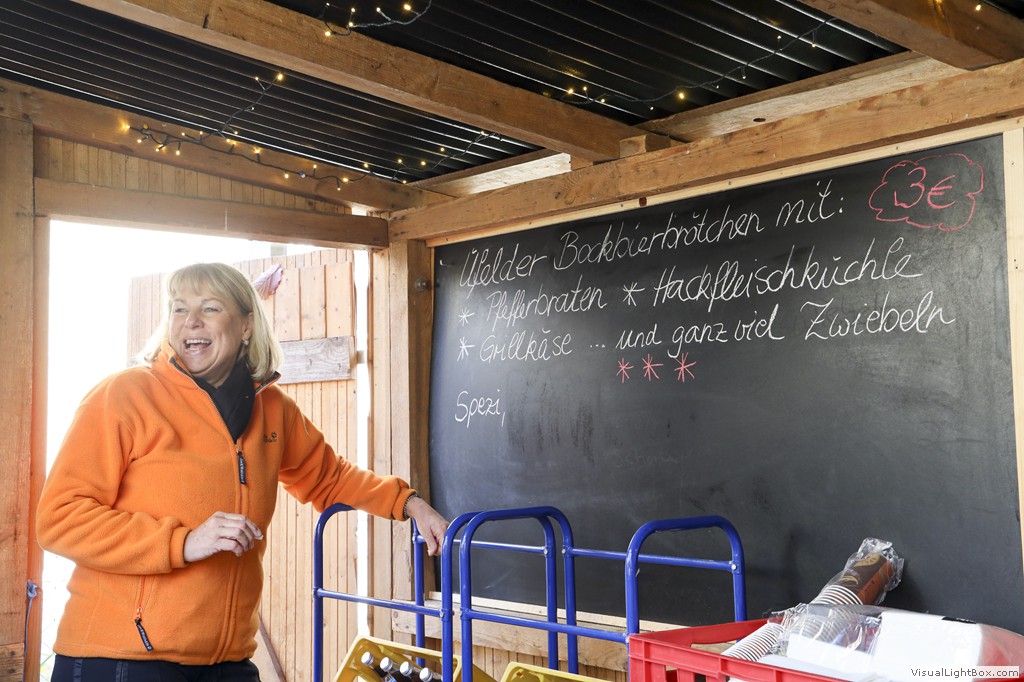 Üfelder Bockbierbrötchen mit: 3€
* Pfefferbraten * Hackfleischküchle
* Grillkäse ... und ganz viel Zwiebeln
* * *
Spezi,
VisualLightBox.com